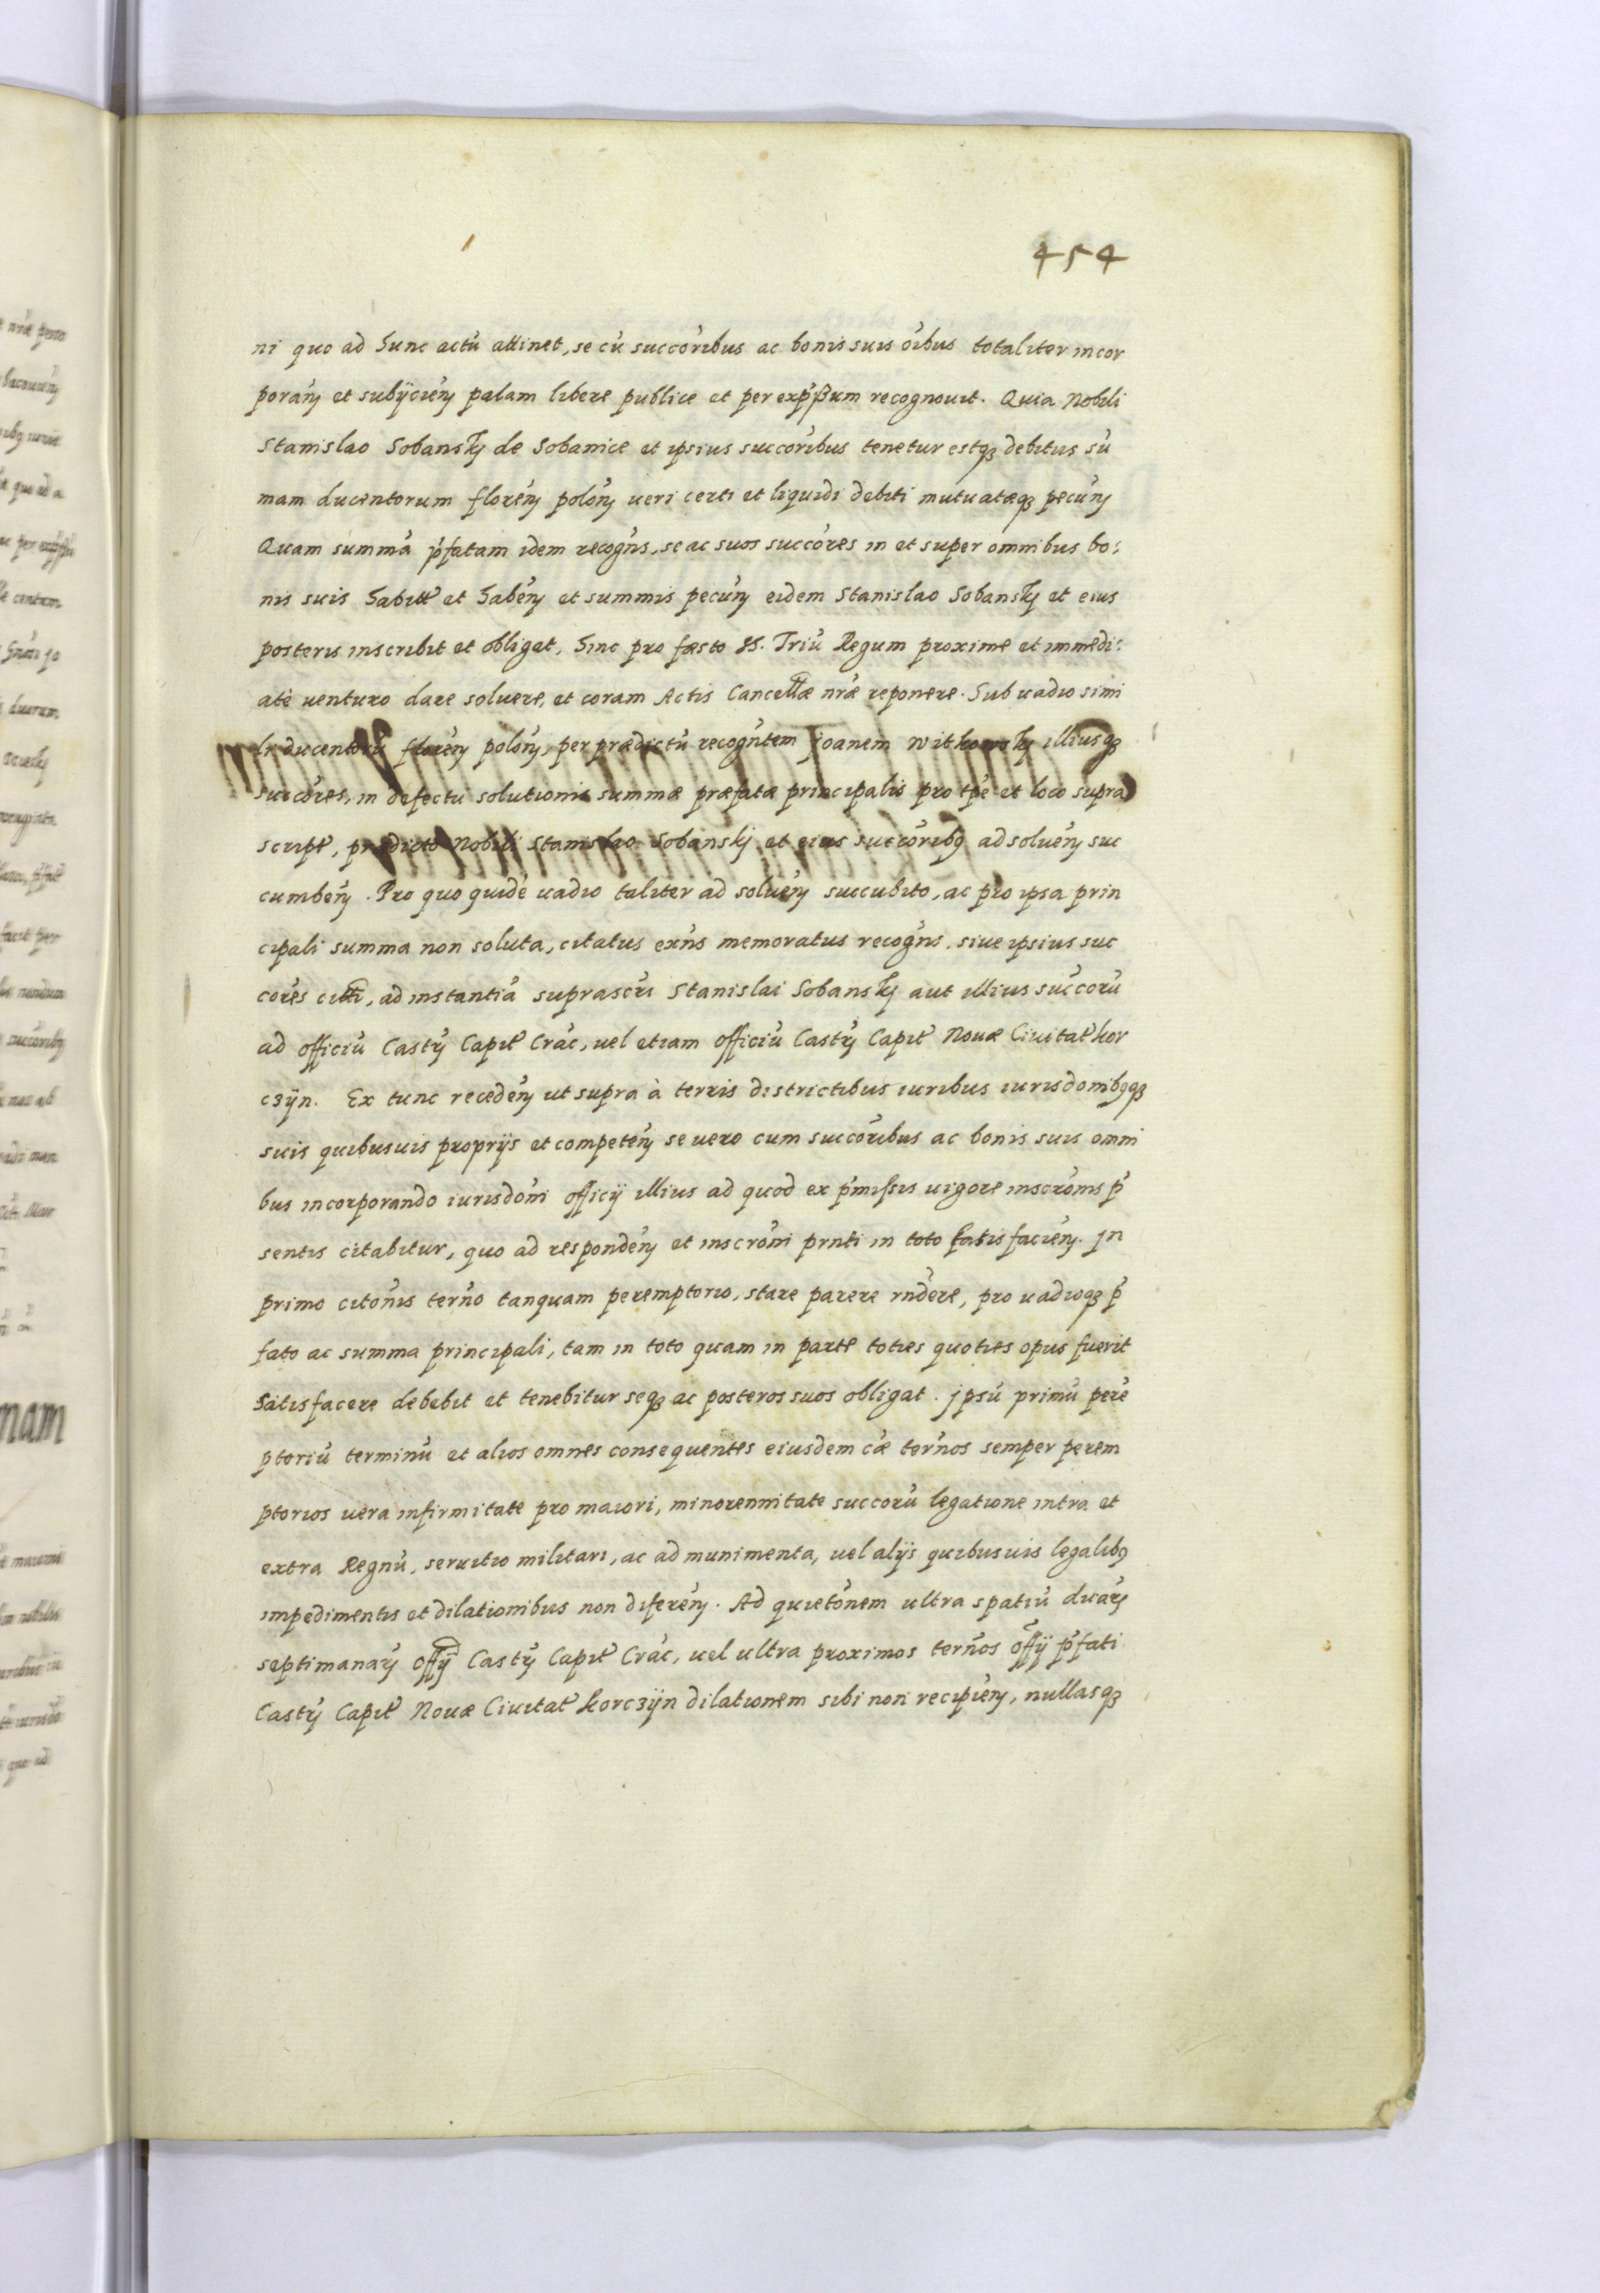 454
ni quo ad hunc actũ attinet, se cũ succõribus ac bonis suis õibus totaliter incor
porãn̄ et subÿciẽn̄ palam libere publice et per exp̃ssum recognouit. Quia Nobili
Stanislao Sobansky de Sobanice et ipsius succõribus tenetur estq̃ȝ debitus sũ
mam ducentorum florẽn̄ polõn̄ ueri certi et liquidi debiti mutuatæqȝ pecũn̄
Quam summã p̃fatam idem recogñs, se ac suos succõres in et super omnibus bo:
nis suis habitt̃ et habẽn̄ et summis pecũn̄ eidem Stanislao Sobansky et eius
posteris inscribit et obligat, hinc pro fæsto SS. Triũ Regum proxime et immedi:
atè uenturo dare soluere, et coram Actis Cancellæ nr̃æ reponere. Sub uadio simi
li ducentorũ florẽn̄ polõn̄, per prædictũ recogñtem Joanem Witkowsky illiusqȝ
succõres, in defectu solutionis summæ præfatæ principalis pro tp̃e et loco supra
script̃, prædicto Nobili Stanislao Sobansky et eius succõribꝰ ad soluẽn̄ suc
cumbẽn̄. Pro quo quidẽ uadio taliter ad soluẽn̄ succubito, ac pro ipsa prin
cipali summa non soluta, citatus exñs memoratus recogñs, siue ipsius suc
cores citti, ad instantiã suprascr̃i Stanislai Sobansky aut illius succorũ
ad officiũ Castr̃ Capit̃ Crãc, uel etiam officiũ Castr̃ Capit̃ Nouæ Ciuitat̃ kor
cȝÿn. Ex tunc recedẽn̄ ut supra à terris districtibus iuribus iurisdonibꝰqȝ
suis quibusuis proprÿs et competẽn̄ se uero cum succõribus ac bonis suis omni
bus incorporando iurisdõni officÿ illius ad quod ex p̃missis uigore inscrõnis p̃
sentis citabitur, quo ad respondẽn̄ et inscrõni prñti in toto satisfaciẽn̄. Jn
primo citõnis terño tanquam peremptorio, stare parere rñdere, pro uadioqȝ p̃
fato ac summa principali, tam in toto quam in parte toties quoties opus fuerit
Satisfacere debebit et tenebitur seqȝ ac posteros suos obligat. Jpsũ primũ perẽ
ptoriũ terminũ et alios omnes consequentes eiusdem cæ̃ terños semper perem
ptorios uera infirmitate pro maiori, minorennitate succorũ legatione intra et
extra Regnũ, seruitio militari, ac ad munimenta, uel alÿs quibusuis legalibꝰ
impedimentis et dilationibus non diferẽn̄. Ad quietõnem ultra spatiũ duar̃
septimanar̃ offÿ Castr̃ Capit̃ Crãc, uel ultra proximos terños offÿ p̃fati
Castr̃ Capit̃ Nouæ Ciuitat̃ korcȝÿn dilationem sibi non recipiẽn̄, nullasqȝ